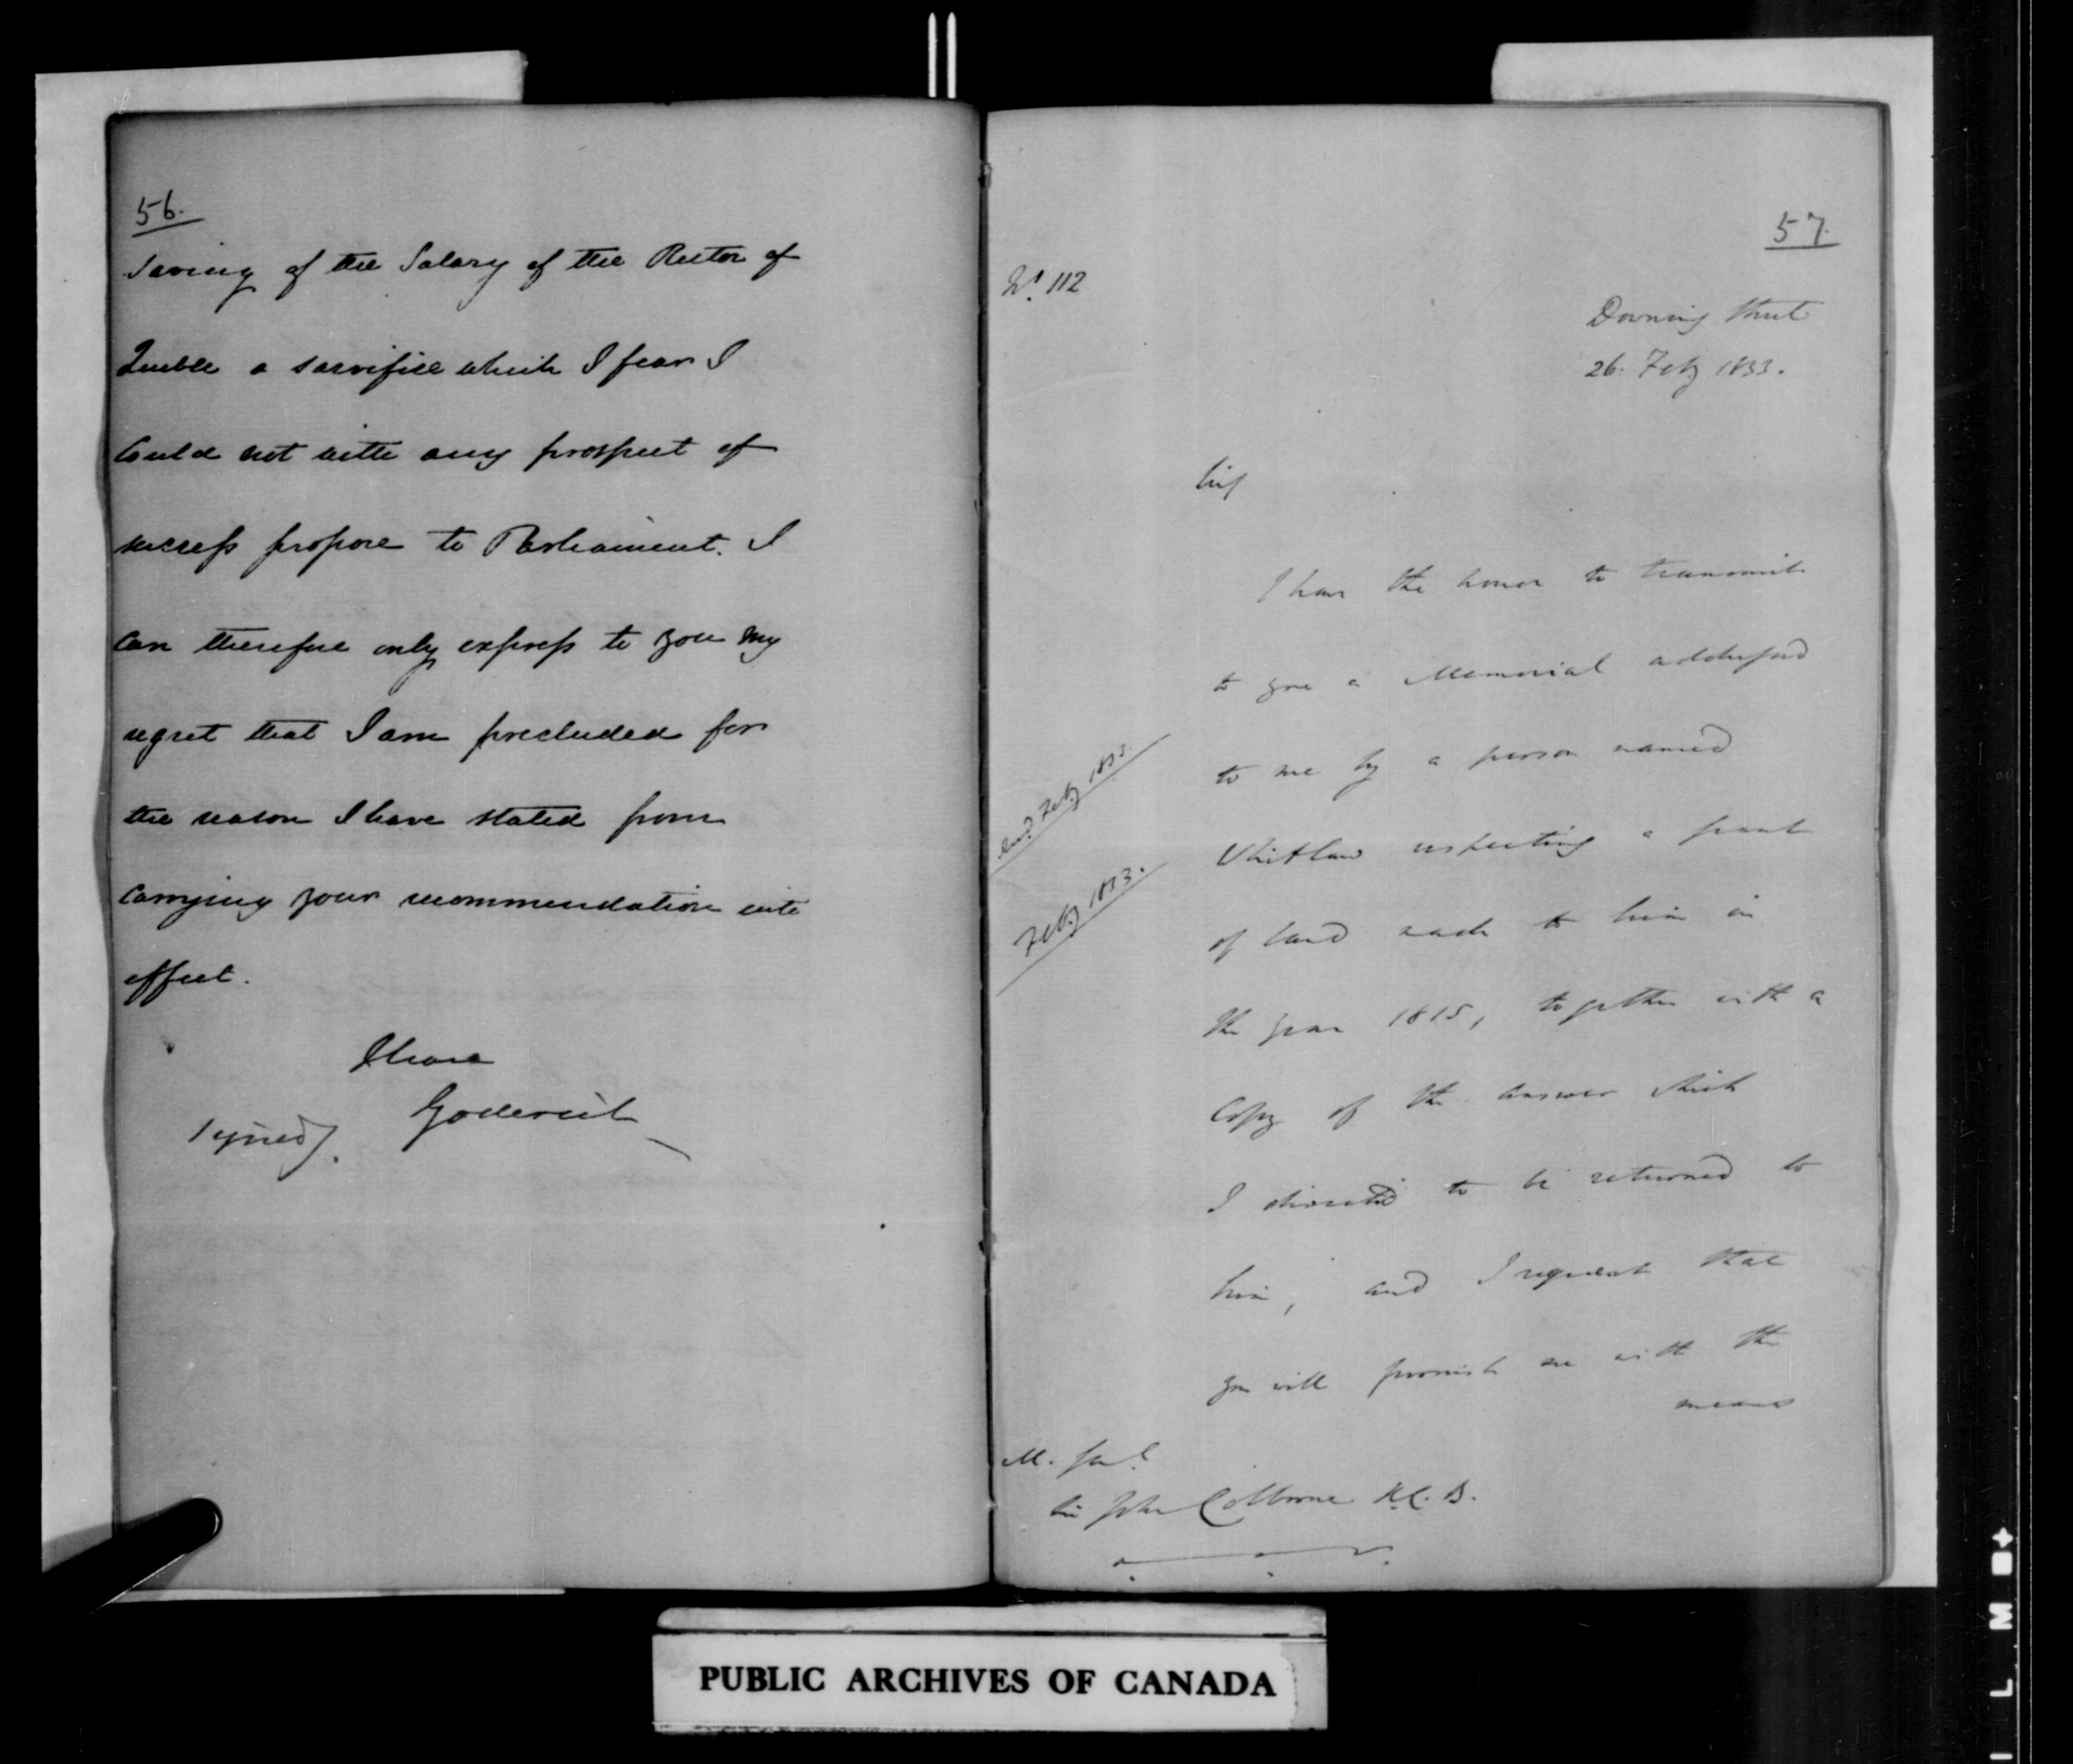 56.
Saving of the Salary of the Rector of
Quebec a sacrifice which I fear I
could not with any prospect of
success propose to Parliament. I
can therefore only express to you my
regret that I am precluded for
the reason I have stated from
carrying your recommendation into
effect.
I have
signed). Goderich
57.
No. 112
Downing Street
26. Feby 1833.
Sir,
I have the honor to transmit
to you a Memorial addressed
to me by a person named
Whitlaw respecting a grant
of land made to him in
the year 1815, together with a
Copy of the answer which
I directed to be returned to
him, and I request that
you will furnish me with the
means
Feby 1833.
Feby 1833.
M. Genl.
Sir John Colborne K.C.B.
PUBLIC ARCHIVES OF CANADA